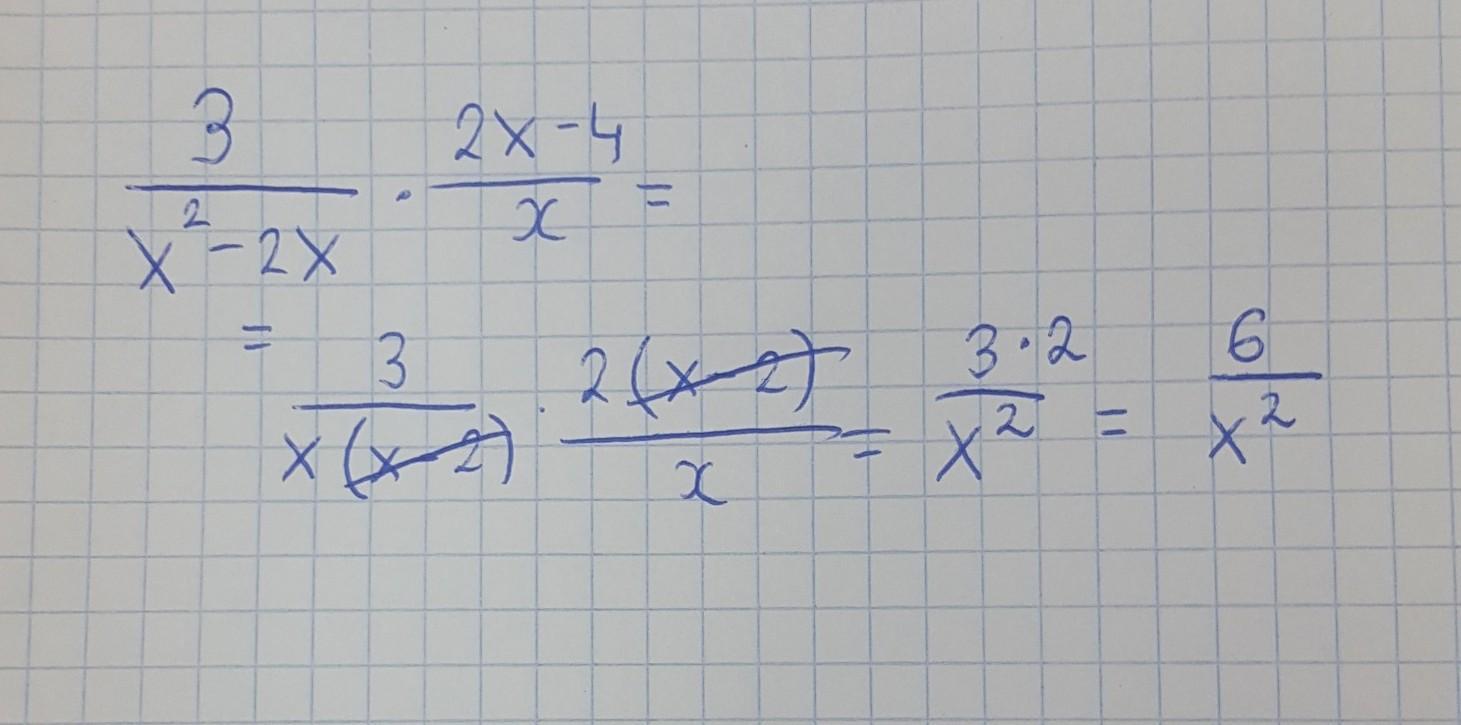 3/(x²-2x) · (2x-4)/x =
= 3/(x(x-2)) · 2(x-2)/x = 3·2/x² = 6/x²